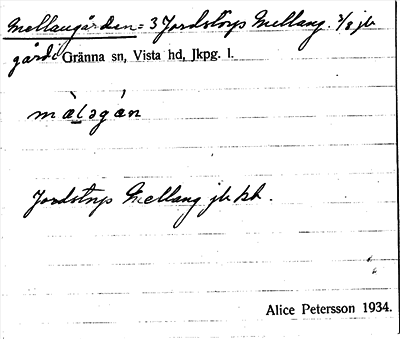 Mellangården = 3 Jordstorps Mellang. 3/8 jb
gård i Gränna sn, Vista hd, Jkpg. l.
màl̲əgán
Jordstorps Mellang jb kb.
Alice Petersson 1934.